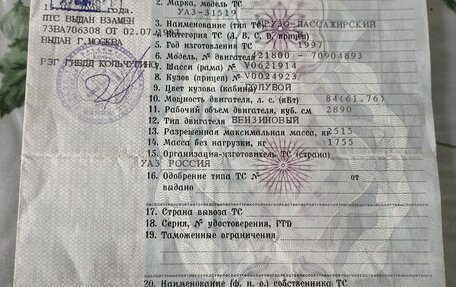 2. Марка, модель ТС
УАЗ-31519
3. Наименование (тип ТС) ГРУЗО-ПАССАЖИРСКИЙ
4. Категория ТС (А, В, С, D, прицеп)
5. Год изготовления ТС 1997
6. Модель, № двигателя 421800 - 70904893
7. Шасси (рама) № V0621914
8. Кузов (прицеп) № V0024923
9. Цвет кузова (кабины) ГОЛУБОЙ
10. Мощность двигателя, л. с. (кВт) 84(61.76)
11. Рабочий объем двигателя, куб. см 2890
12. Тип двигателя БЕНЗИНОВЫЙ
13. Разрешенная максимальная масса, кг 2515
14. Масса без нагрузки, кг 1755
15. Организация-изготовитель ТС (страна)
УАЗ РОССИЯ
16. Одобрение типа ТС № от
выдано
17. Страна вывоза ТС
18. Серия, № удостоверения, ГТD
19. Таможенные ограничения
20. Наименование (ф. и. о.) собственника ТС
года.
ПТС ВЫДАН ВЗАМЕН
73ВА706308 ОТ 02.07.1997
ВЫДАН Г.МОСКВА
РЭГ ГИБДД КОЛЬЧУГИНО